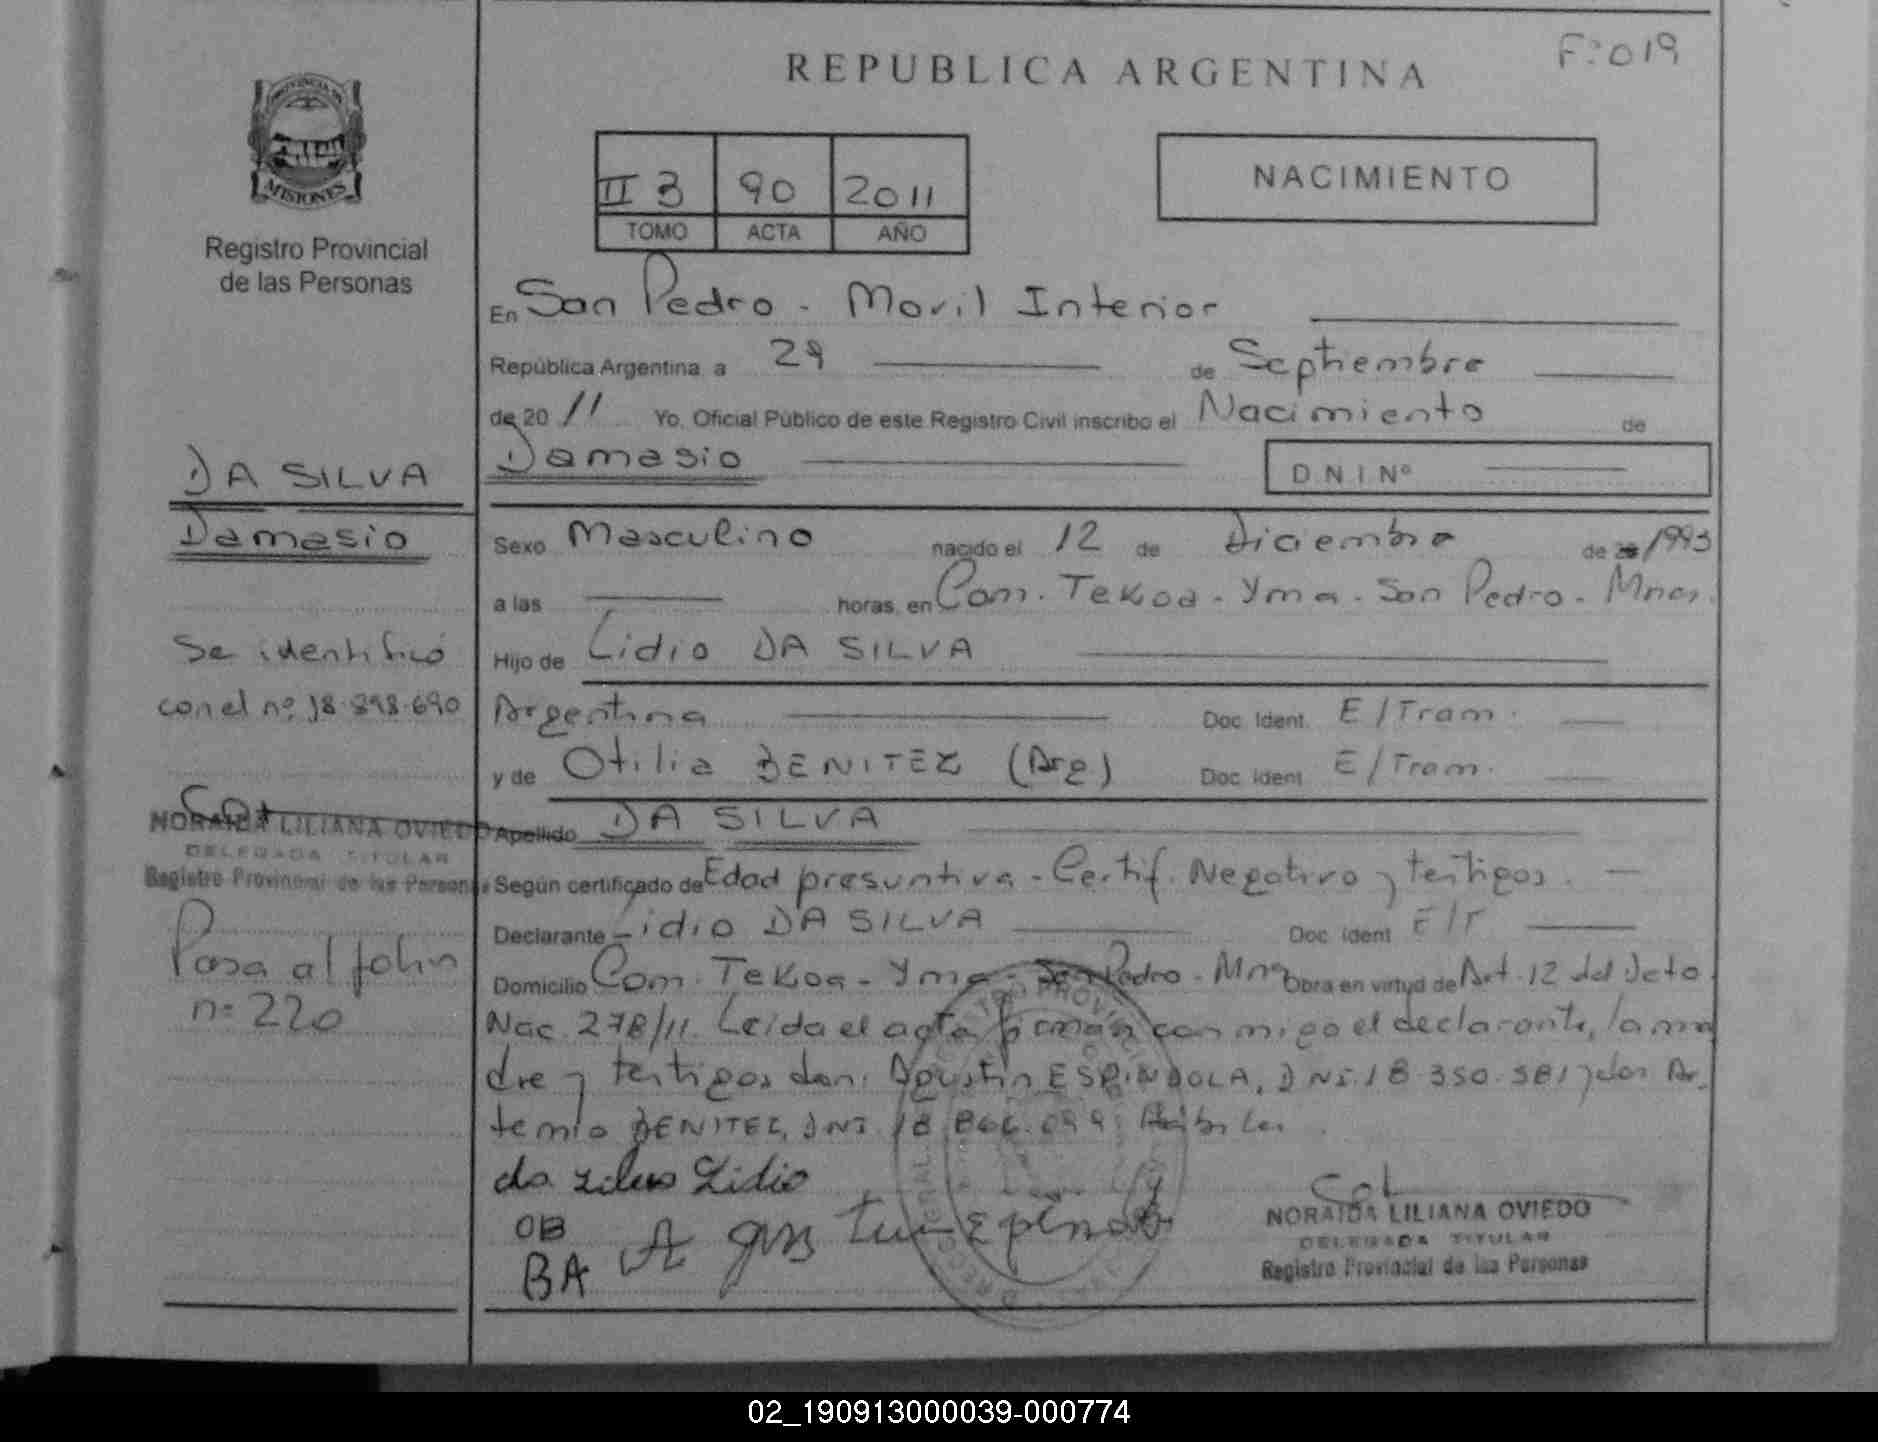 F: 019
REPUBLICA ARGENTINA
PROVINCIA DE
MISIONES
Registro Provincial
de las Personas
II 3 90 2011
TOMO ACTA AÑO
NACIMIENTO
En San Pedro - Movil Interior
República Argentina a 29 de Septiembre
de 20 11 Yo, Oficial Público de este Registro Civil inscribo el Nacimiento de
Damasio
D N I Nº
DA SILVA
Damasio
Sexo Masculino nacido el 12 de Diciembre de 1993
a las horas, en Com. Tekoa - Yma - San Pedro - Mnes.
Hijo de Lidio DA SILVA
Se identificó
con el nº 18.898.690
Argentina Doc. Ident. E/Tram.
y de Otilia BENITEZ (Arg) Doc. Ident. E/Tram.
NORAIDA LILIANA OVIEDO
DELEGADA TITULAR
Registro Provincial de las Personas
Apellido DA SILVA
Según certificado de Edad presuntiva - Certif. Negativo y testigos.
Declarante Lidio DA SILVA Doc. Ident E/T
Pasa al folio
nº 220
Domicilio Com. Tekoa - Yma - San Pedro - Mnes Obra en virtud de Art. 12 del Dcto
Nac. 278/11. Leida el acta firman conmigo el declarante, la ma
dre y testigos don: Agustin ESPINDOLA, DNI. 18.350.581 y don Ar-
temio BENITEZ, DNI. 18.866.099. Hábiles
da silva Lidio
OB
BA
NORAIDA LILIANA OVIEDO
DELEGADA TITULAR
Registro Provincial de las Personas
02_190913000039-000774